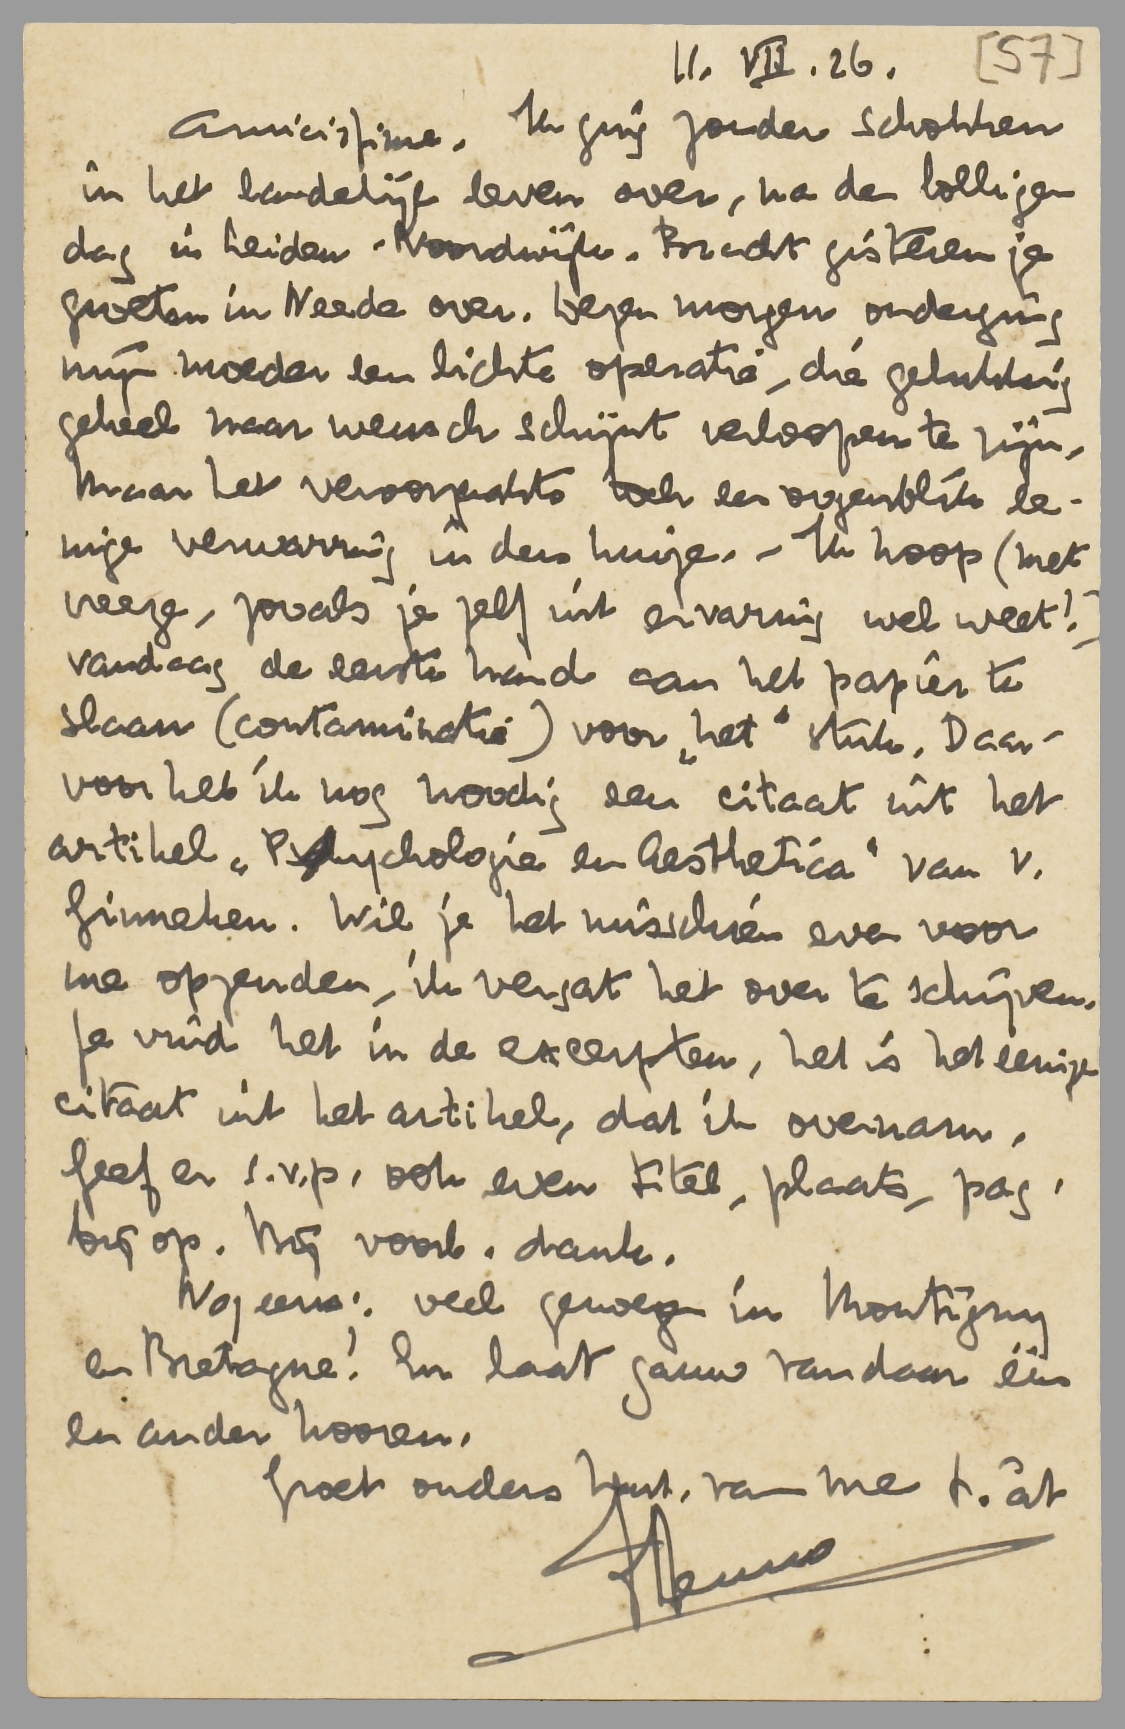 11. VII. 26. [57]
Amicissime. Ik ging zonder schokken
in het landelijk leven over, na den lolligen
dag in Leiden-Noordwijk. Bracht gisteren je
groeten in Neede over. Dezen morgen onderging
mijn moeder een lichte operatie, die gelukkig
geheel naar wensch schijnt verloopen te zijn,
Maar het veroorzaakte toch een oogenblik ee-
nige verwarring in den huize. - Ik hoop (met
vreeze, zooals je zelf uit ervaring wel weet!)
vandaag de eerste hand aan het papier te
slaan (contaminatie) voor „het" stuk. Daar-
voor heb ik nog noodig een citaat uit het
artikel „Psychologie en Aesthetica" van v.
Ginneken. Wil je het misschien even voor
me opzenden, ik vergat het over te schrijven.
Je vindt het in de excerpten, het is het eenige
citaat uit het artikel, dat ik overnam.
Geef er s.v.p. ook even titel, plaats, pag.
bij op. Bij voorb. dank.
Nog eens: veel genoegen in Montigny
en Bretagne! En laat gauw vandaar één
en ander hooren.
Groet ouders hart. van me t. àt
Menno